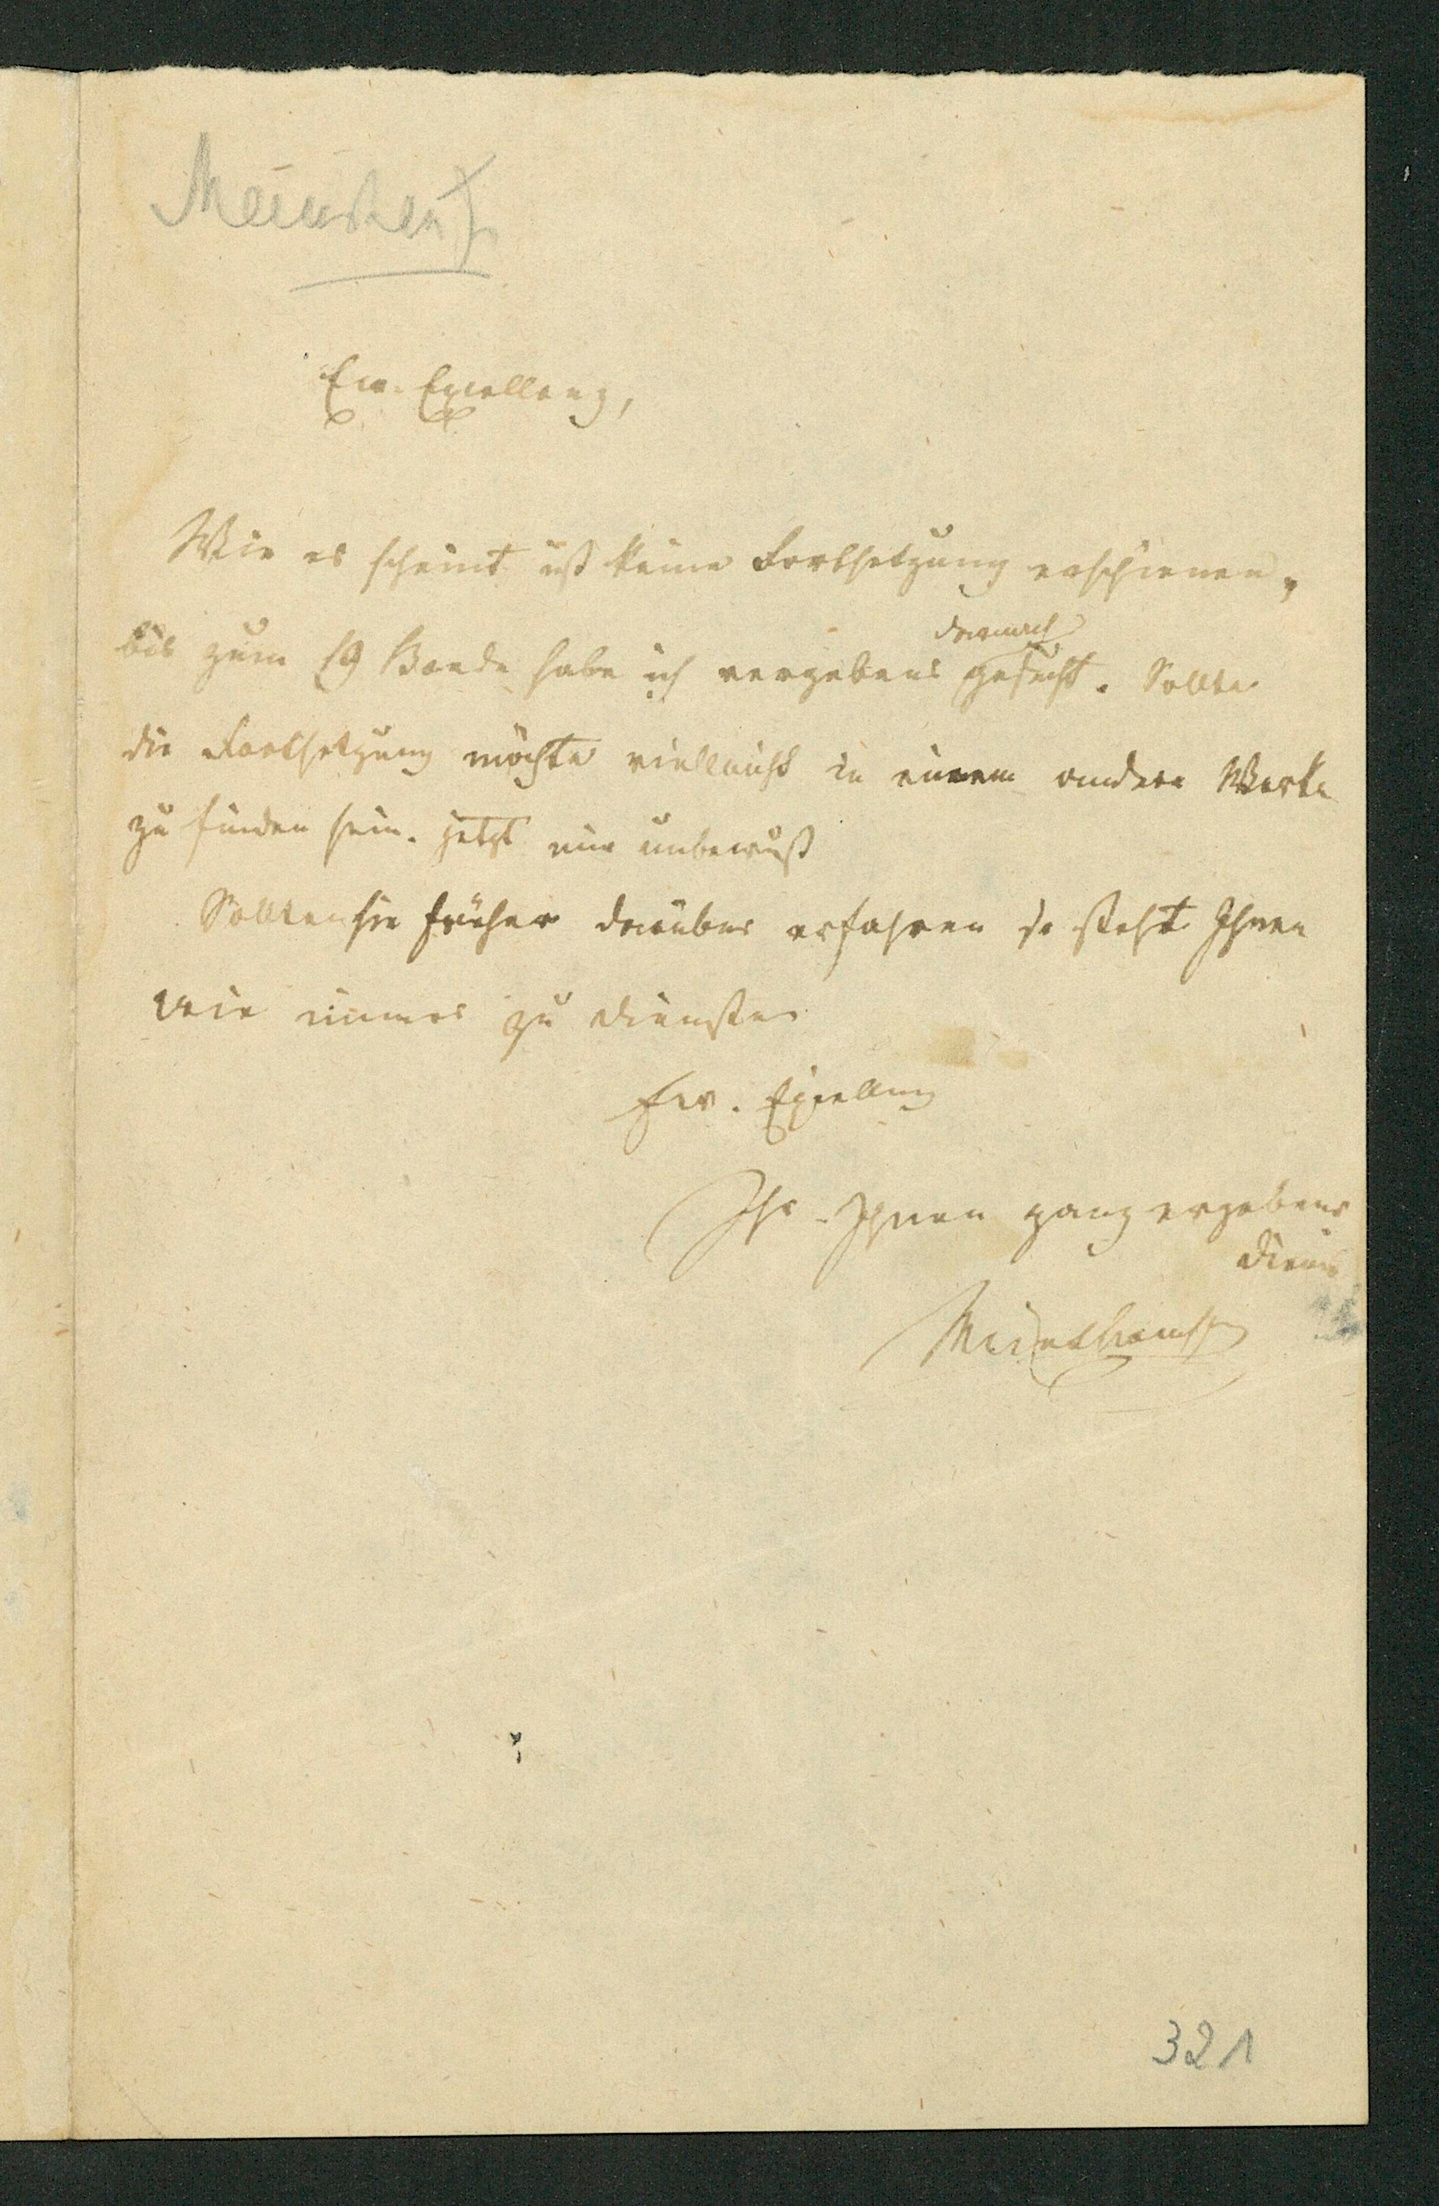 Ew. Excellenz,
Wie es scheint ist keine Fortsetzung erschienen,
darnach
bis zum 19 Bande habe ich vergebens gesucht. Sollte
die Fortsetzung möchte vielleicht in einem andern Werke
zu finden sein. jetzt mir unbewußt
Sollten sie früher darüber erfahren so steht Ihnen
wie immer zu Diensten
Ew. Excellenz
Ihr Ihnen ganz ergebener
Diener
321